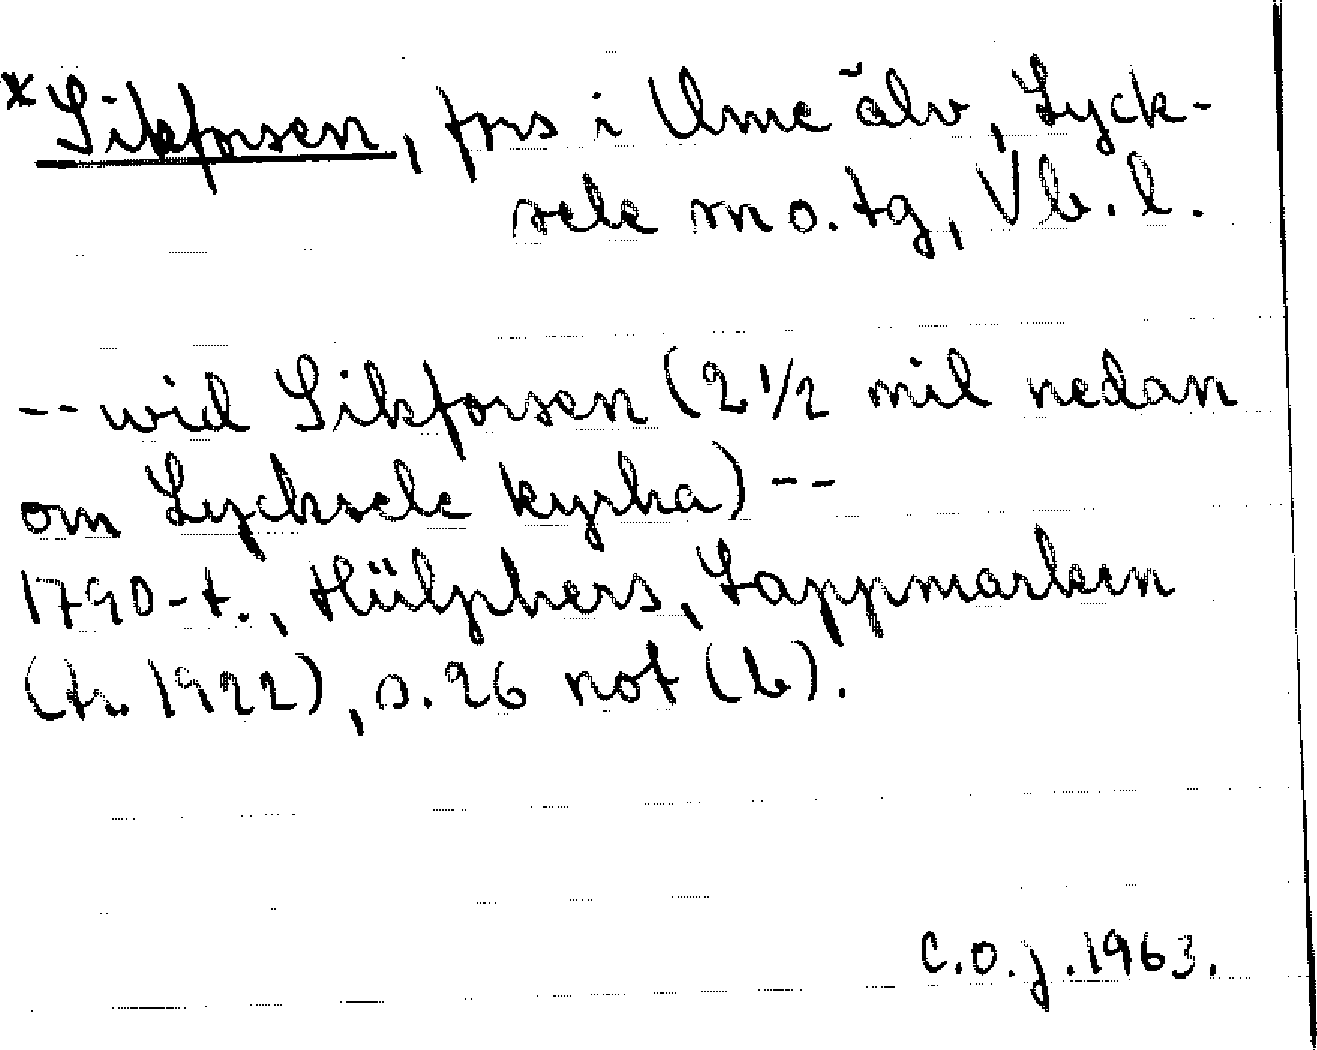 *Sikforsen, fors i Ume älv, Lyck-
sele m o. tg, Vb. l.
-- wid Sikforsen (2 1/2 mil nedan
om Lycksele kyrka) --
1790-t., Hülphers, Lappmarken
(tr. 1922), s. 26 not (b).
C.O.J. 1963.